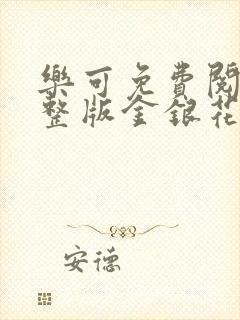 樂可免費閱
整版金銀花
安德